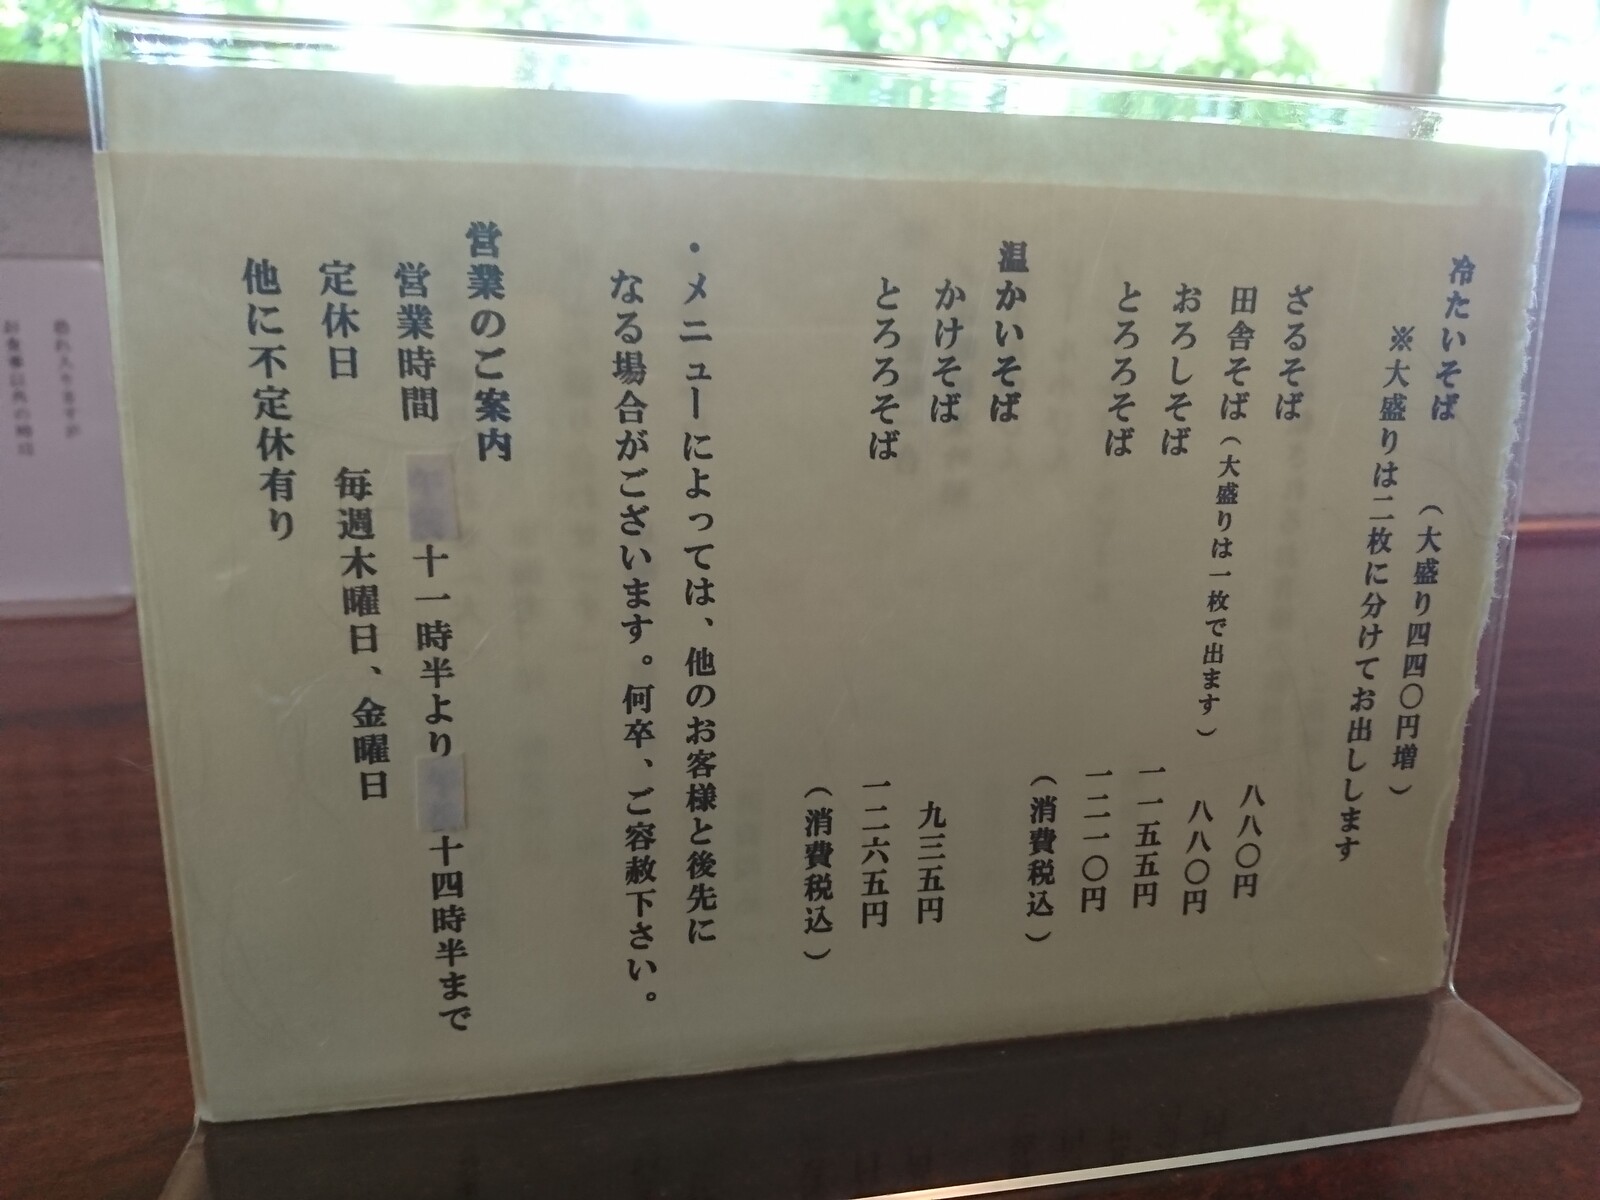 冷たいそば　（大盛り四四〇円増）
※大盛りは二枚に分けてお出しします
ざるそば　八八〇円
田舎そば（大盛りは一枚で出ます）　八八〇円
おろしそば　一一五五円
とろろそば　一二一〇円
（消費税込）
温かいそば
かけそば　九三五円
とろろそば　一二六五円
（消費税込）
・メニューによっては、他のお客様と後先に
なる場合がございます。何卒、ご容赦下さい。
営業のご案内
営業時間　十一時半より　十四時半まで
定休日　毎週木曜日、金曜日
他に不定休有り